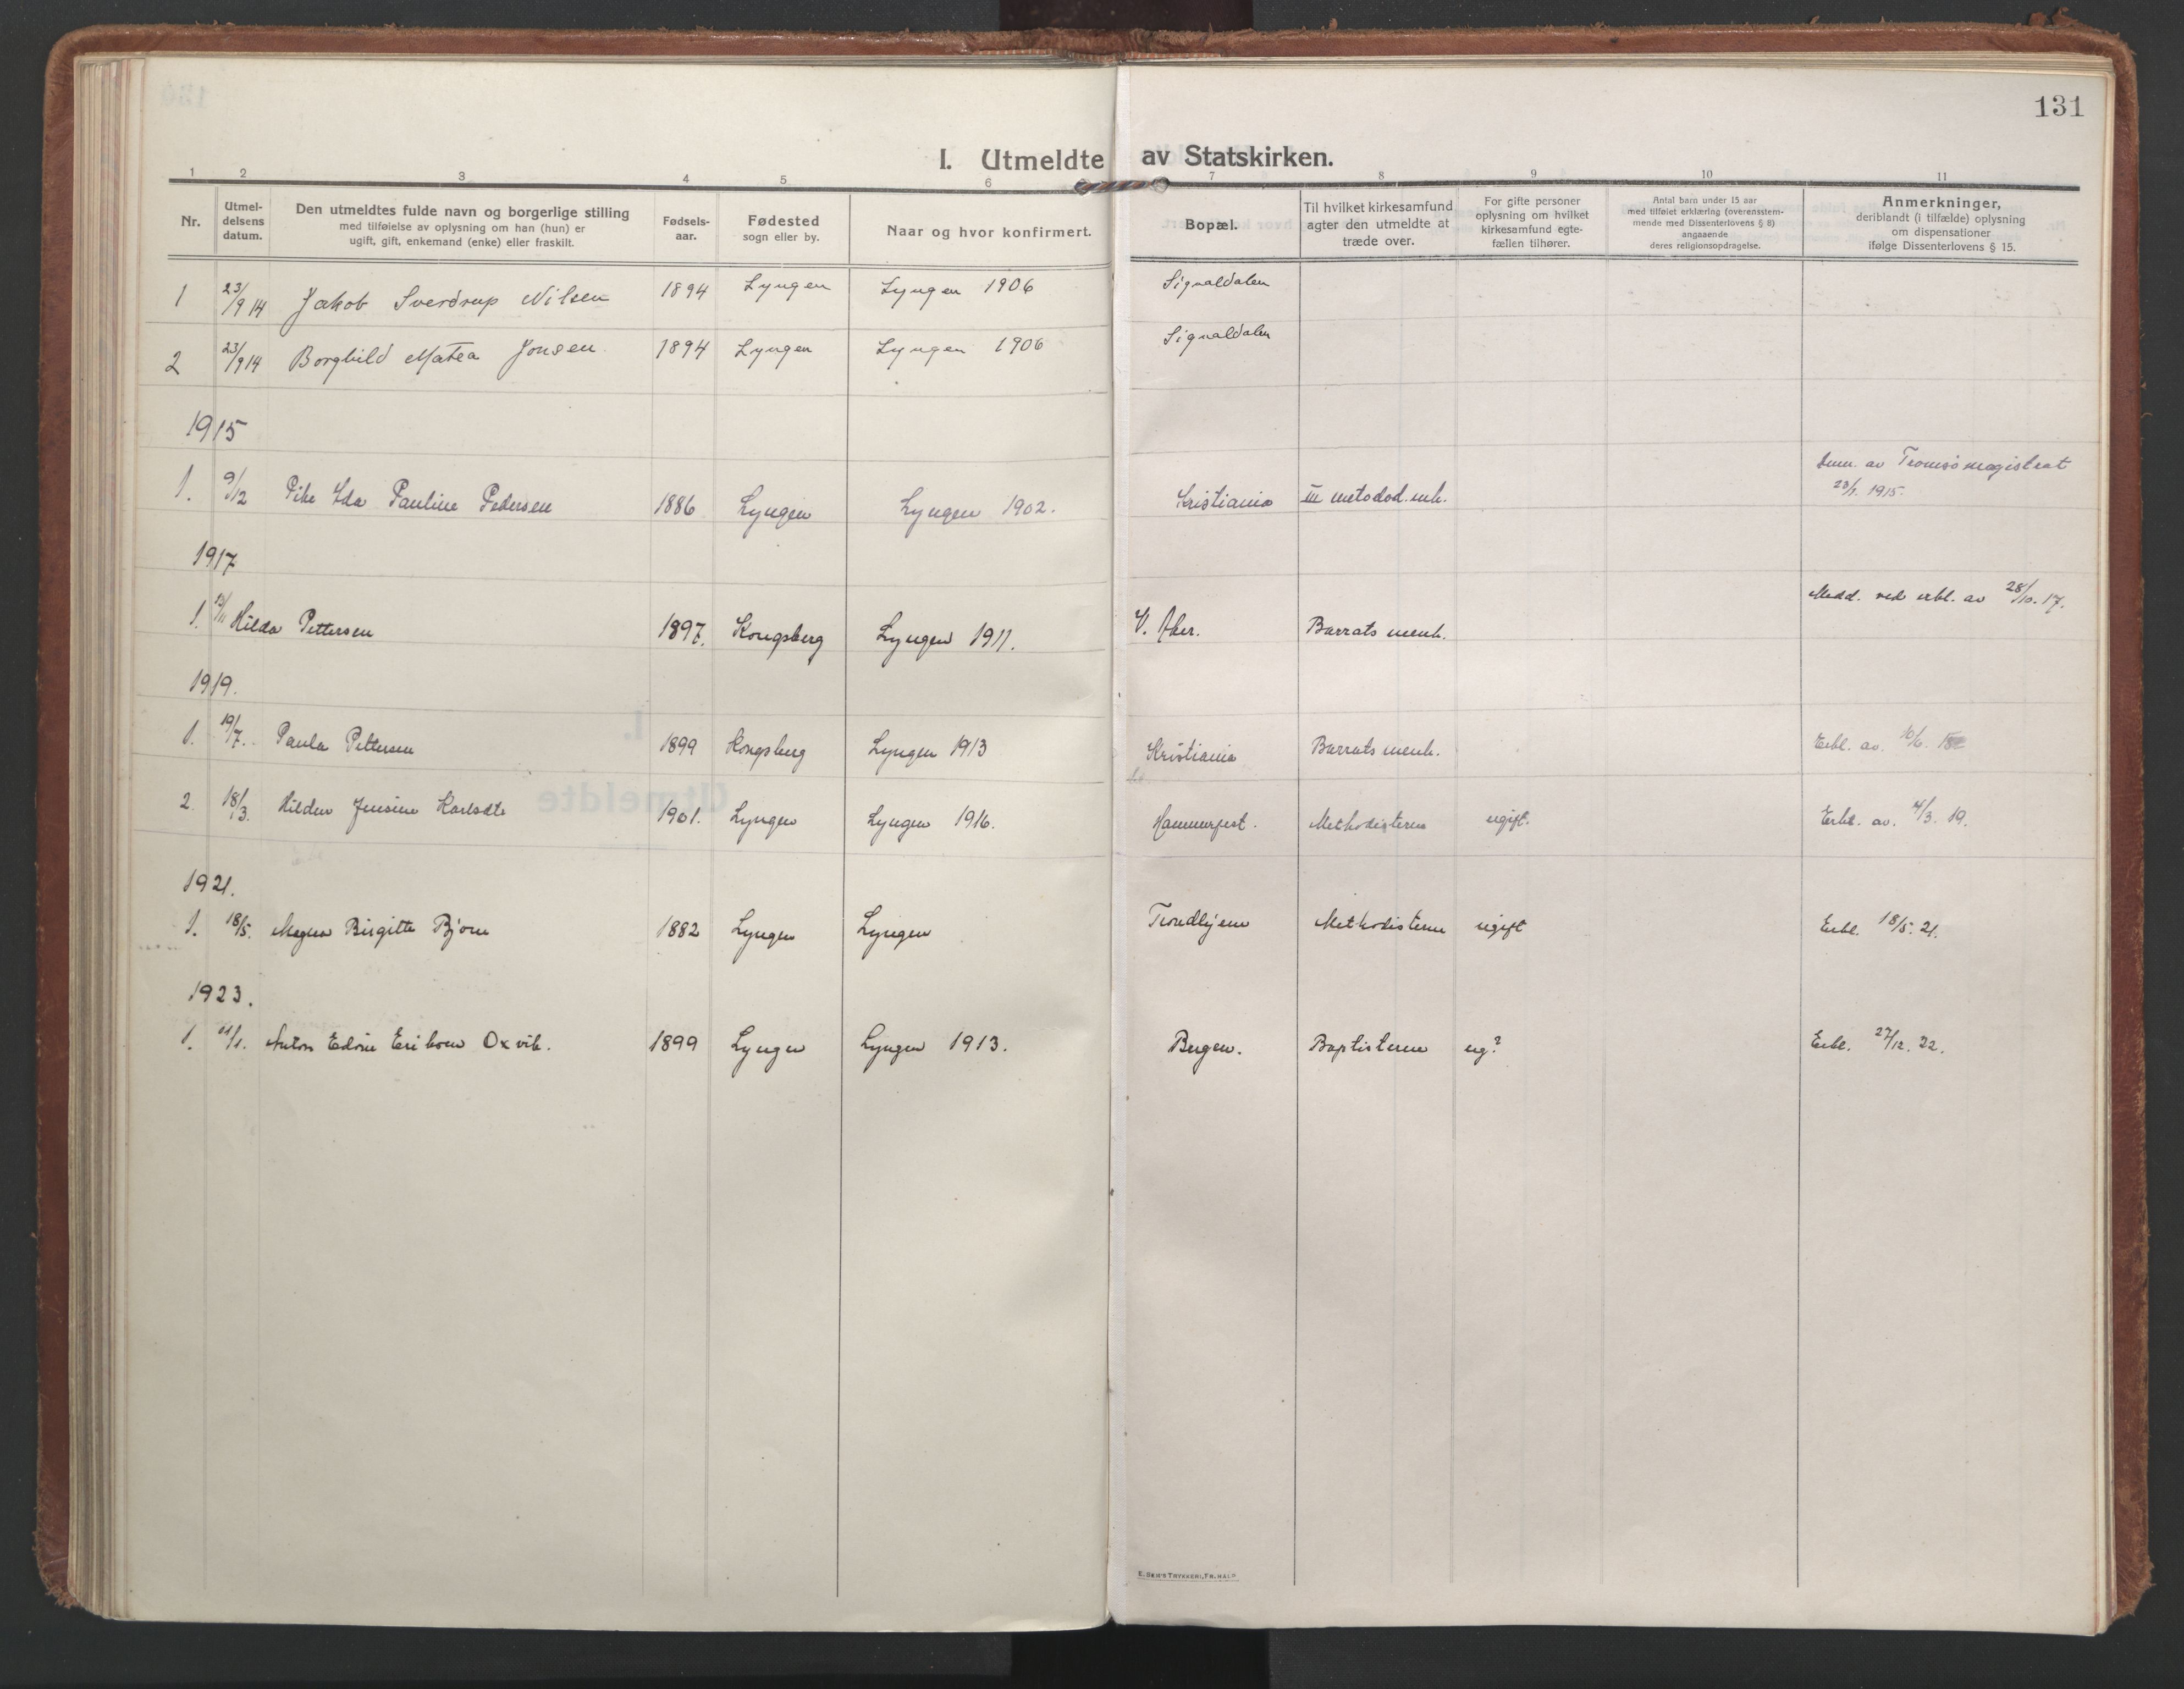 131
I. Utmeldte av Statskirken.
1 2 3 4 5 6 7 8 9 10 11
Nr.
Utmel-
delsens
datum.
Den utmeldtes fulde navn og borgerlige stilling
med tilføielse av oplysning om han (hun) er
ugift, gift, enkemand (enke) eller fraskilt.
Fødsels-
aar.
Fødested
sogn eller by.
Naar og hvor konfirmert.
Bopæl.
Til hvilket kirkesamfund
agter den utmeldte at
træde over.
For gifte personer
oplysning om hvilket
kirkesamfund egte-
fællen tilhører.
Antal barn under 15 aar
med tilføiet erklæring (overensstem-
mende med Dissenterlovens § 8)
angaaende
deres religionsopdragelse.
Anmerkninger,
deriblandt (i tilfælde) oplysning
om dispensationer
ifølge Dissenterlovens § 15.
1 23/9 14 Jakob Sverdrup Nilsen 1894 Lyngen Lyngen 1906 Signaldalen
2 23/9 14 Borghild Matea Jonsen 1894 Lyngen Lyngen 1906 Signaldalen
1915
1. 9/12 Pike Ida Pauline Pedersen 1886 Lyngen Lyngen 1902. Kristiania III metodod. mh. av Tromsö magistrat
23/1. 1915.
1917
1. Hilda Pettersen 1897. Kongsberg Lyngen 1911. V. Aker. Barrats menh. Medd. ved erkl. av 28/10. 17.
1919.
1. 19/7. Paula Pettersen 1899 Kongsberg Lyngen 1913 Kristiania Barrats menh. Erkl. av. 10/6. 18
2. 18/3. Hildur Jensine Karlsdtr 1901. Lyngen Lyngen 1916. Hammerfest. Methodisterne ugift. Erkl. av. 4/3. 19.
1921.
1. 18/5. Magna Birgitte Bjørn 1882 Lyngen Lyngen Trondhjem Methodisterne ugift Erkl. 18/5. 21.
1923.
1. 11/1. Anton Edvin Eriksen Oxvik. 1899 Lyngen Lyngen 1913. Bergen. Baptisterne ug? Erkl. 27/12. 22.
E. SEM'S TRYKKERI, FR.HALD